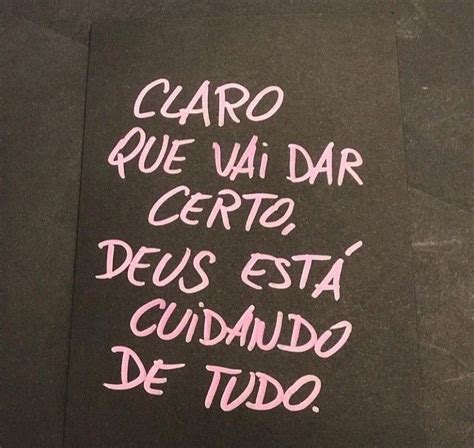 CLARO
QUE VAi DAR
CERTO,
DEUS ESTÁ
CUiDANDO
DE TUDO.